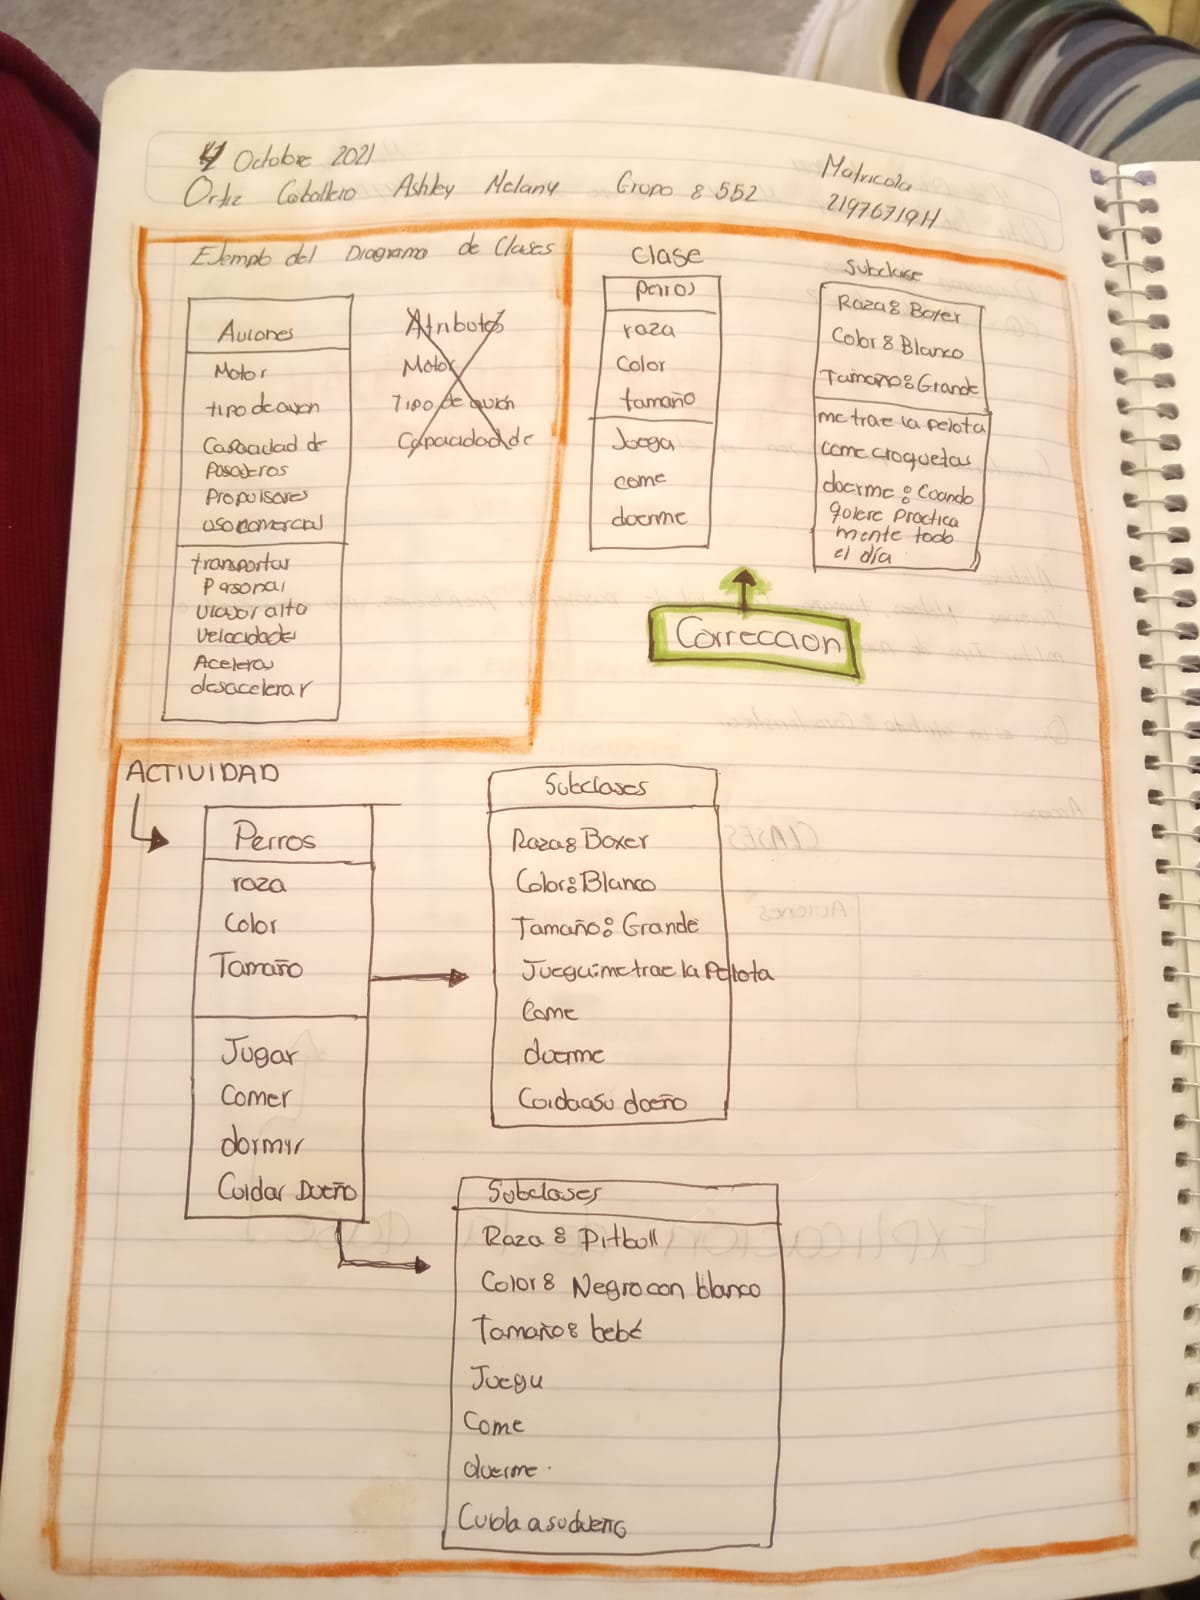 4 Octubre 2021
Ortiz Caballero Ashley Melany Grupo 8 552
Matricola
21976719H
Ejemplo del Diagrama de Clases
Aviones
Motor
tipo de avion
Capacidad de
Pasajeros
Propulsores
uso comercial
transportar
Personal
viajar alta
velocidades
Acelerar
desacelerar
Atributos
Motor
Tipo de avión
Capacidad de
Clase
Perros
raza
Color
tamaño
Juega
come
duerme
Subclase
Raza: Boxer
Color: Blanco
Tamaño: Grande
me trae la pelota
come croquetas
duerme: Cuando
quiere practica
mente todo
el día
Correccion
ACTIVIDAD
Perros
raza
Color
Tamaño
Jugar
Comer
dormir
Cuidar Dueño
Subclases
Raza: Boxer
Color: Blanco
Tamaño: Grande
Juega: me trae la Pelota
Come
duerme
Cuida a su dueño
Subclases
Raza: Pitbull
Color: Negro con blanco
Tamaño: bebé
Juega
Come
duerme.
Cuida a su dueño